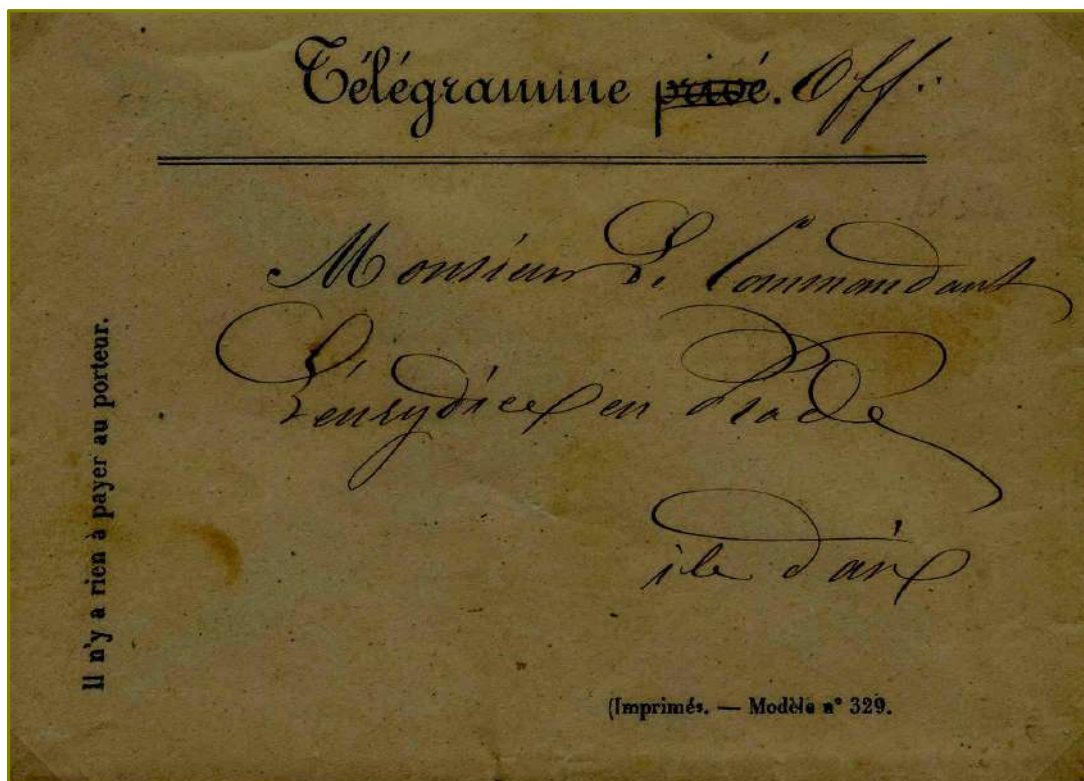 Télégramme privé. Off.
Monsieur Le Commandant
L'eurydice en Rade
ile d'aix
Il n'y a rien à payer au porteur.
(Imprimés. — Modèle n° 329.